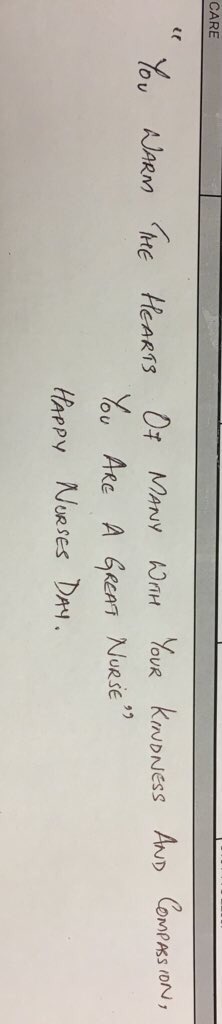 CARE
"You WARM THE HEARTS Of MANY WITH YOUR KINDNESS AND COMPASSION,
You ARE A GREAT NURSE"
HAPPY NURSES DAY.